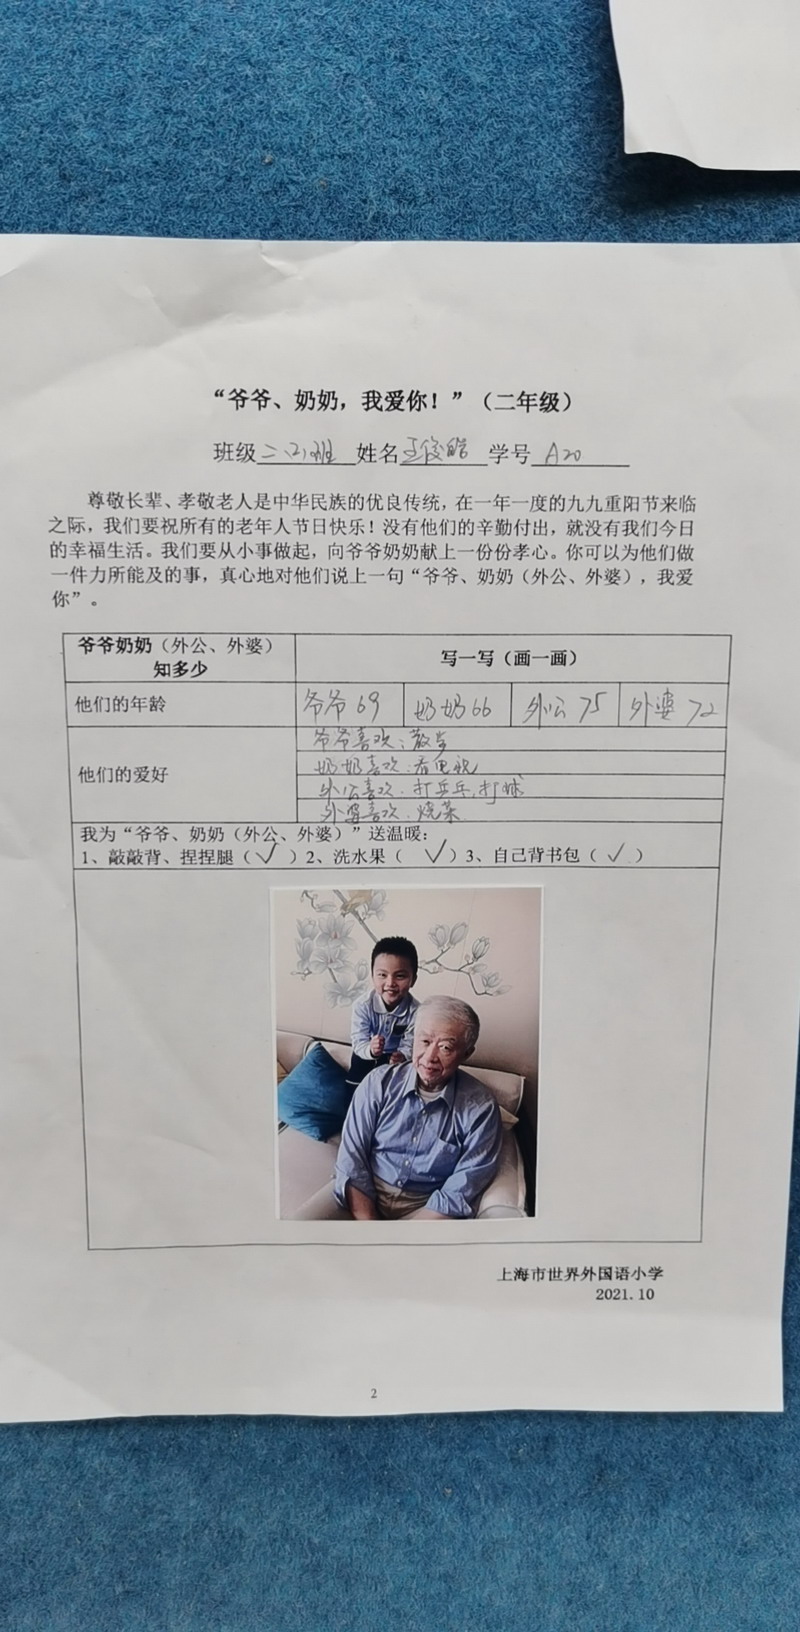 “爷爷、奶奶，我爱你！”（二年级）
班级 二(2)班 姓名 王俊皓 学号 A20
尊敬长辈、孝敬老人是中华民族的优良传统，在一年一度的九九重阳节来临
之际，我们要祝所有的老年人节日快乐！没有他们的辛勤付出，就没有我们今日
的幸福生活。我们要从小事做起，向爷爷奶奶献上一份份孝心。你可以为他们做
一件力所能及的事，真心地对他们说上一句“爷爷、奶奶（外公、外婆），我爱
你”。
爷爷奶奶（外公、外婆）
知多少
写一写（画一画）
他们的年龄
爷爷 69 奶奶 66 外公 75 外婆 72
他们的爱好
爷爷喜欢：散步
奶奶喜欢：看电视
外公喜欢：打乒乓，打球
外婆喜欢：烧菜
我为“爷爷、奶奶（外公、外婆）”送温暖：
1、敲敲背、捏捏腿（√）2、洗水果（√）3、自己背书包（√）
上海市世界外国语小学
2021.10
2